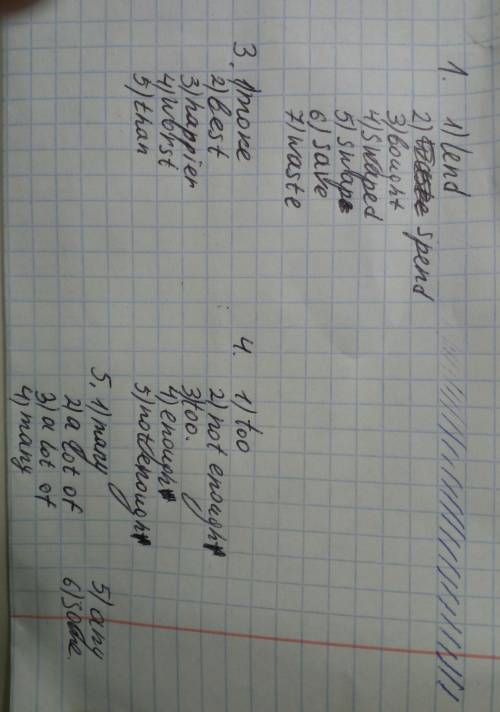 1. 1) lend
2) spend
3) bought
4) swaped
5) swap
6) save
7) waste
3. 1) more
2) best
3) happier
4) worst
5) than
4. 1) too
2) not enough
3) too.
4) enough
5) not enough
5. 1) many
2) a lot of
3) a lot of
4) many
5) any
6) some